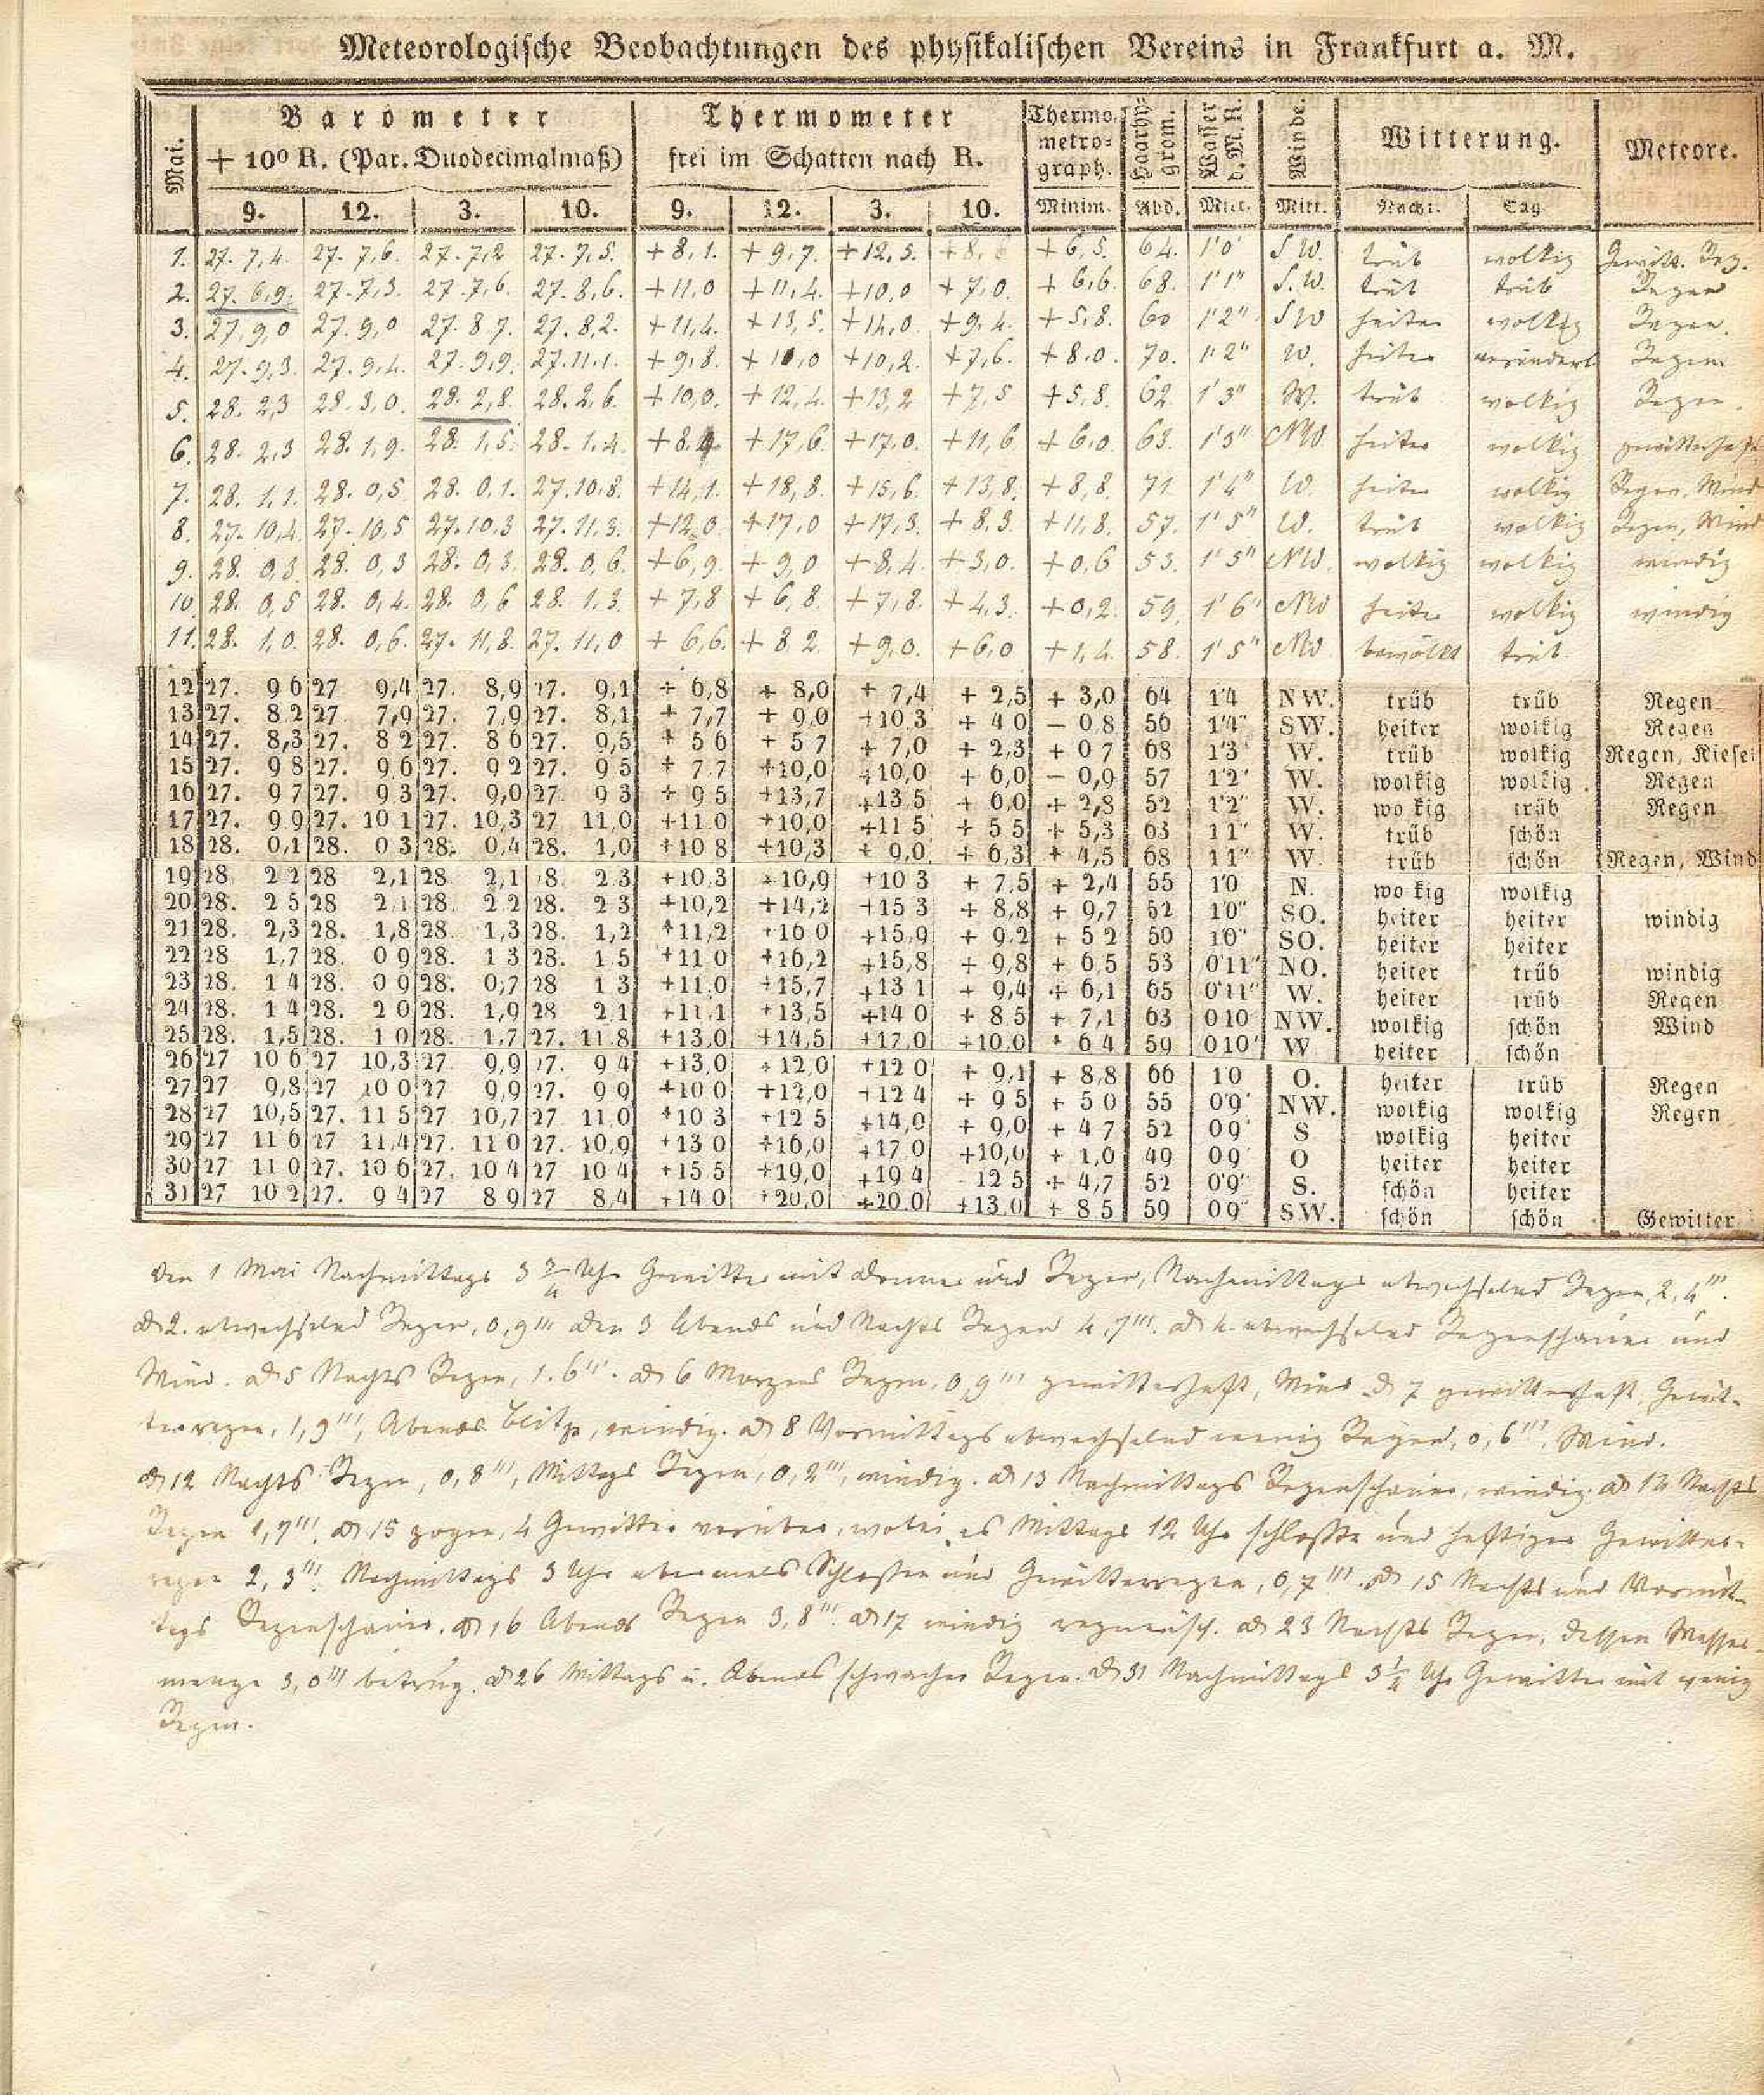 Meteorologische Beobachtungen des physikalischen Vereins in Frankfurt a. M.
Mai. Barometer Thermometer Thermometrograph. Haarhygrom. Wasser d. M. A. Winde. Witterung. Meteore.
+ 10⁰ R. (Par. Duodecimalmaß) frei im Schatten nach R.
9. 12. 3. 10. 9. 12. 3. 10. Minim. Abd. Mitt. Mitt. Nacht. Tag
1. 27. 7,4. 27. 7,6. 27. 7,2 27. 7,5. +8,1. +9,7. +12,5. +8, +6,5. 64. 1'0' S.W. trüb wolkig Gewitt. Reg.
2. 27. 6,9. 27. 7,3. 27. 7,6. 27. 8,6. +11,0 +11,4. +10,0 +7,0. +6,6. 68. 1'1" S.W. trüb trüb Regen
3. 27. 9,0 27. 9,0 27. 8 7. 27. 8,2. +11,4. +13,5. +14,0 +9,4. +5,8. 60 1'2" SW heiter wolkig Regen.
4. 27. 9,3. 27. 9,4. 27. 9,9. 27. 11,1. +9,8. +11,0 +10,2. +7,6. +8,0. 70. 1'2" W. heiter verändert Regen
5. 28. 2,3 28. 3,0. 28. 2,8. 28. 2,6. +10,0. +12,4. +13,2 +7,5 +5,8. 62. 1'3" W. trüb wolkig Regen.
6. 28. 2,3 28. 1,9. 28. 1,5. 28. 1,4. +8,4 +17,6 +17,0. +11,6 +6,0. 63. 1'3" NW heiter wolkig gewitterhaft
7. 28. 1,1. 28. 0,5. 28. 0,1. 27. 10,8. +14,1. +18,8. +15,6. +13,8. +8,8. 71. 1'4" W. heiter wolkig Regen, Wind
8. 27. 10,4. 27. 10,5 27. 10,3 27. 11,3. +12,0. +17,0 +17,3. +8,3. +11,8. 57. 1'5" W. trüb wolkig Regen, Wind
9. 28. 0,3. 28. 0,3 28. 0,3. 28. 0,6. +6,9. +9,0 +8,4. +3,0. +0,6 53. 1'5" NW. wolkig wolkig windig
10. 28. 0,5 28. 0,4. 28. 0,6 28. 1,3. +7,8 +6,8. +7,8. +4,3. +0,2. 59. 1'6' NW heiter wolkig windig
11. 28. 1,0. 28. 0,6. 27. 11,8. 27. 11,0 +6,6. +8 2. +9,0. +6,0 +1,4. 58. 1'5" NW bewölkt trüb
12 27. 9 6 27 9,4 27. 8,9 27. 9,1 + 6,8 + 8,0 + 7,4 + 2,5 + 3,0 64 1'4 NW. trüb trüb Regen
13 27. 8 2 27 7,9 27. 7,9 27. 8,1 + 7,7 + 9,0 +10 3 + 4 0 − 0 8 56 1'4" SW. heiter wolkig Regen
14 27. 8,3 27. 8 2 27. 8 6 27. 9,5 + 5 6 + 5 7 + 7,0 + 2,3 + 0 7 68 1'3' W. trüb wolkig Regen, Kiesel
15 27. 9 8 27. 9,6 27. 9 2 27. 9 5 + 7 7 +10,0 +10,0 + 6,0 − 0,9 57 1'2' W. wolkig wolkig Regen
16 27. 9 7 27. 9 3 27. 9,0 27 9 3 + 9 5 +13,7 +13 5 + 6,0 + 2,8 52 1'2" W. wo kig trüb Regen
17 27. 9 9 27. 10 1 27. 10,3 27 11,0 +11 0 +10,0 +11 5 + 5 5 + 5,3 63 1 1" W. trüb schön
18 28. 0,1 28. 0 3 28. 0,4 28. 1,0 +10 8 +10,3 + 9,0 + 6,3 + 4,5 68 1 1" W. trüb schön Regen, Wind
19 28 2 2 28 2,1 28 2,1 8. 2 3 +10,3 +10,9 +10 3 + 7,5 + 2,4 55 1'0 N. wo kig wolkig
20 28. 2 5 28 2,1 28. 2 2 28. 2 3 +10,2 +14,2 +15 3 + 8,8 + 9,7 52 1'0" SO. heiter heiter windig
21 28. 2,3 28. 1,8 28. 1,3 28. 1,2 +11,2 +16 0 +15,9 + 9,2 + 5 2 50 10" SO. heiter heiter
22 28 1,7 28. 0 9 28. 1 3 28. 1 5 +11 0 +16,2 +15,8 + 9,8 + 6,5 53 0'11" NO. heiter trüb windig
23 28. 1 4 28. 0 9 28. 0,7 28 1 3 +11,0 +15,7 +13 1 + 9,4 + 6,1 65 0'11" W. heiter trüb Regen
24 28. 1 4 28. 2 0 28. 1,9 28 2 1 +11,1 +13,5 +14 0 + 8 5 + 7,1 63 0 10 NW. wolkig schön Wind
25 28. 1,5 28. 1 0 28. 1,7 27. 11 8 +13,0 +14,5 +17,0 +10,0 + 6 4 59 0 10' W heiter schön
26 27 10 6 27 10,3 27 9,9 27. 9 4 +13,0 +12,0 +12 0 + 9,1 + 8,8 66 10 O. heiter trüb Regen
27 27 9,8 27 10 0 27 9,9 27. 9 9 +10 0 +12,0 +12 4 + 9 5 + 5 0 55 0'9' NW. wolkig wolkig Regen
28 27 10,5 27. 11 5 27 10,7 27 11,0 +10 3 +12 5 +14,0 + 9,0 + 4 7 52 0 9' S wolkig heiter
29 27 11 6 27 11,4 27. 11 0 27. 10,9 +13 0 +16,0 +17 0 +10,0 + 1,0 49 0 9 O heiter heiter
30 27 11 0 27. 10 6 27. 10 4 27 10 4 +15 5 +19,0 +19 4 12 5 + 4,7 52 0'9" S. schön heiter
31 27 10 2 27. 9 4 27 8 9 27 8,4 +14 0 +20,0 +20,0 +13,0 + 8 5 59 0 9" SW. schön schön Gewitter
den 1 Mai Nachmittags 3 3/4 Uhr Gewitter mit Donner und Regen, Nachmittags abwechselnd Regen, 2,4‴.
d 2. abwechselnd Regen, 0,9‴ den 3 Abends und Nachts Regen 4,7‴. d 4. abwechselnd Regenschauer und
Wind. d 5 Nachts Regen, 1,6‴. d 6 Morgens Regen, 0 9‴ gewitterhaft, Wind. d 7 gewitterhaft. Gewit-
terregen, 1,9‴, Abends Blitze, windig. d 8 Vormittags abwechselnd wenig Regen, 0,6‴, Wind.
d 12 Nachts Regen, 0,8‴, Mittags Regen, 0,2‴, windig. d 13 Nachmittags Regenschauer, windig. d 14 Nachts
Regen 1,7‴. d 15 zogen 4 Gewitter vorüber, wobei es Mittags 12 Uhr schloßte und heftiger Gewitter-
regen 2,3‴. Nachmittags 3 Uhr abermals Schloßen und Gewitterregen, 0,7‴. d 15 Nachts und Vormit-
tags Regenschauer. d 16 Abends Regen 3,8‴. d 17 windig regnerisch. d 23 Nachts Regen, dessen Wasser-
menge 3,0‴ betrug. d 26 Mittags u. Abends schwacher Regen. d 31 Nachmittags 3 1/2 Uhr Gewitter mit wenig
Regen.